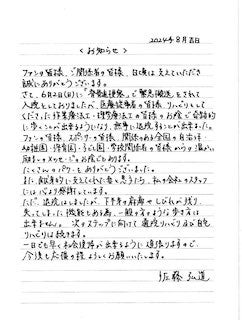 2024年8月吉日
＜お知らせ＞
ファンの皆様、ご関係者の皆様、日頃は支えていただき
誠にありがとうございます。
さて、6月2日(日)に「脊髄梗塞」で緊急搬送をされて
入院をしておりましたが、医療従事者の皆様、リハビリをして
くださった作業療法士・理学療法士の皆様のお陰で自力的
に歩くことが出来るようになり、無事に退院することが出来ました。
ファンの皆様、スポンサーの皆様、関係のある全国の自治体・
幼稚園・保育園・こども園、学校関係者の皆様からの温かい
励ましのメッセージのお陰でもあります。
たくさんのパワーをありがとうございました。
また、献身的に支えてくれた妻と息子たち、私の会社のスタッフ
には心より感謝しています。
ただ、退院はしましたが、下半身の麻痺やしびれが残り、
失ってしまった機能もある為、一般の方のような歩き方は
出来ません。次のステップに向けて通院リハビリ及び自宅
リハビリは続きます。
一日でも早く社会復帰が出来るように頑張りますので、
今後も応援の程よろしくお願いいたします。
佐藤弘道